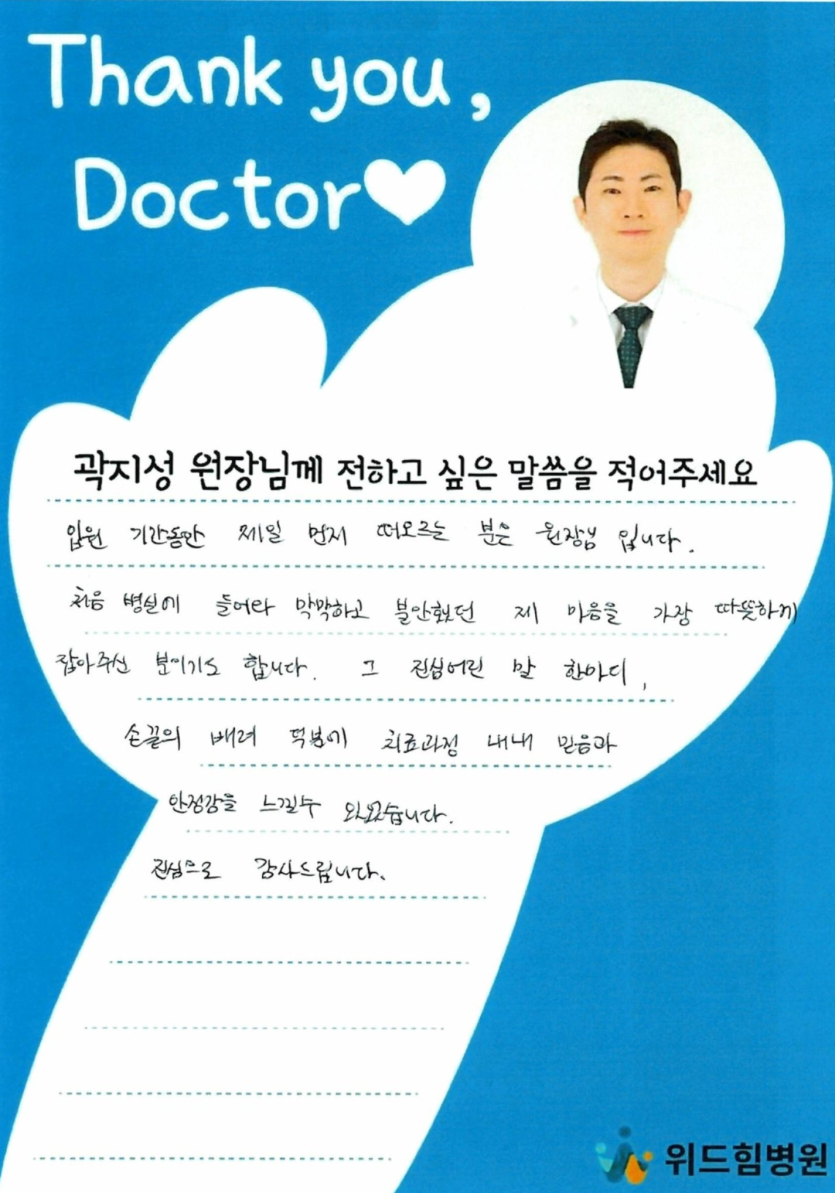 Thank you,
Doctor
곽지성 원장님께 전하고 싶은 말씀을 적어주세요
입원 기간동안 제일 먼저 떠오르는 분은 원장님 입니다.
처음 병실에 들어와 막막하고 불안했던 제 마음을 가장 따뜻하게
잡아주신 분이기도 합니다. 그 진심어린 말 한마디,
손끝의 배려 덕분에 치료과정 내내 믿음과
안정감을 느낄수 있었습니다.
진심으로 감사드립니다.
위드힘병원